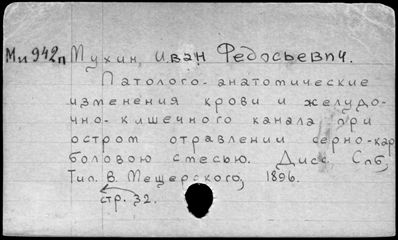 Ми942п Мухин, Иван Федосьевич.
Патолого-анатомические
изменения крови и желудо-
чно-кишечного канала при
остром отравлении серно-кар
боловою смесью. Дисс. Спб,
Тип. В. Мещерского, 1896.
стр. 32.